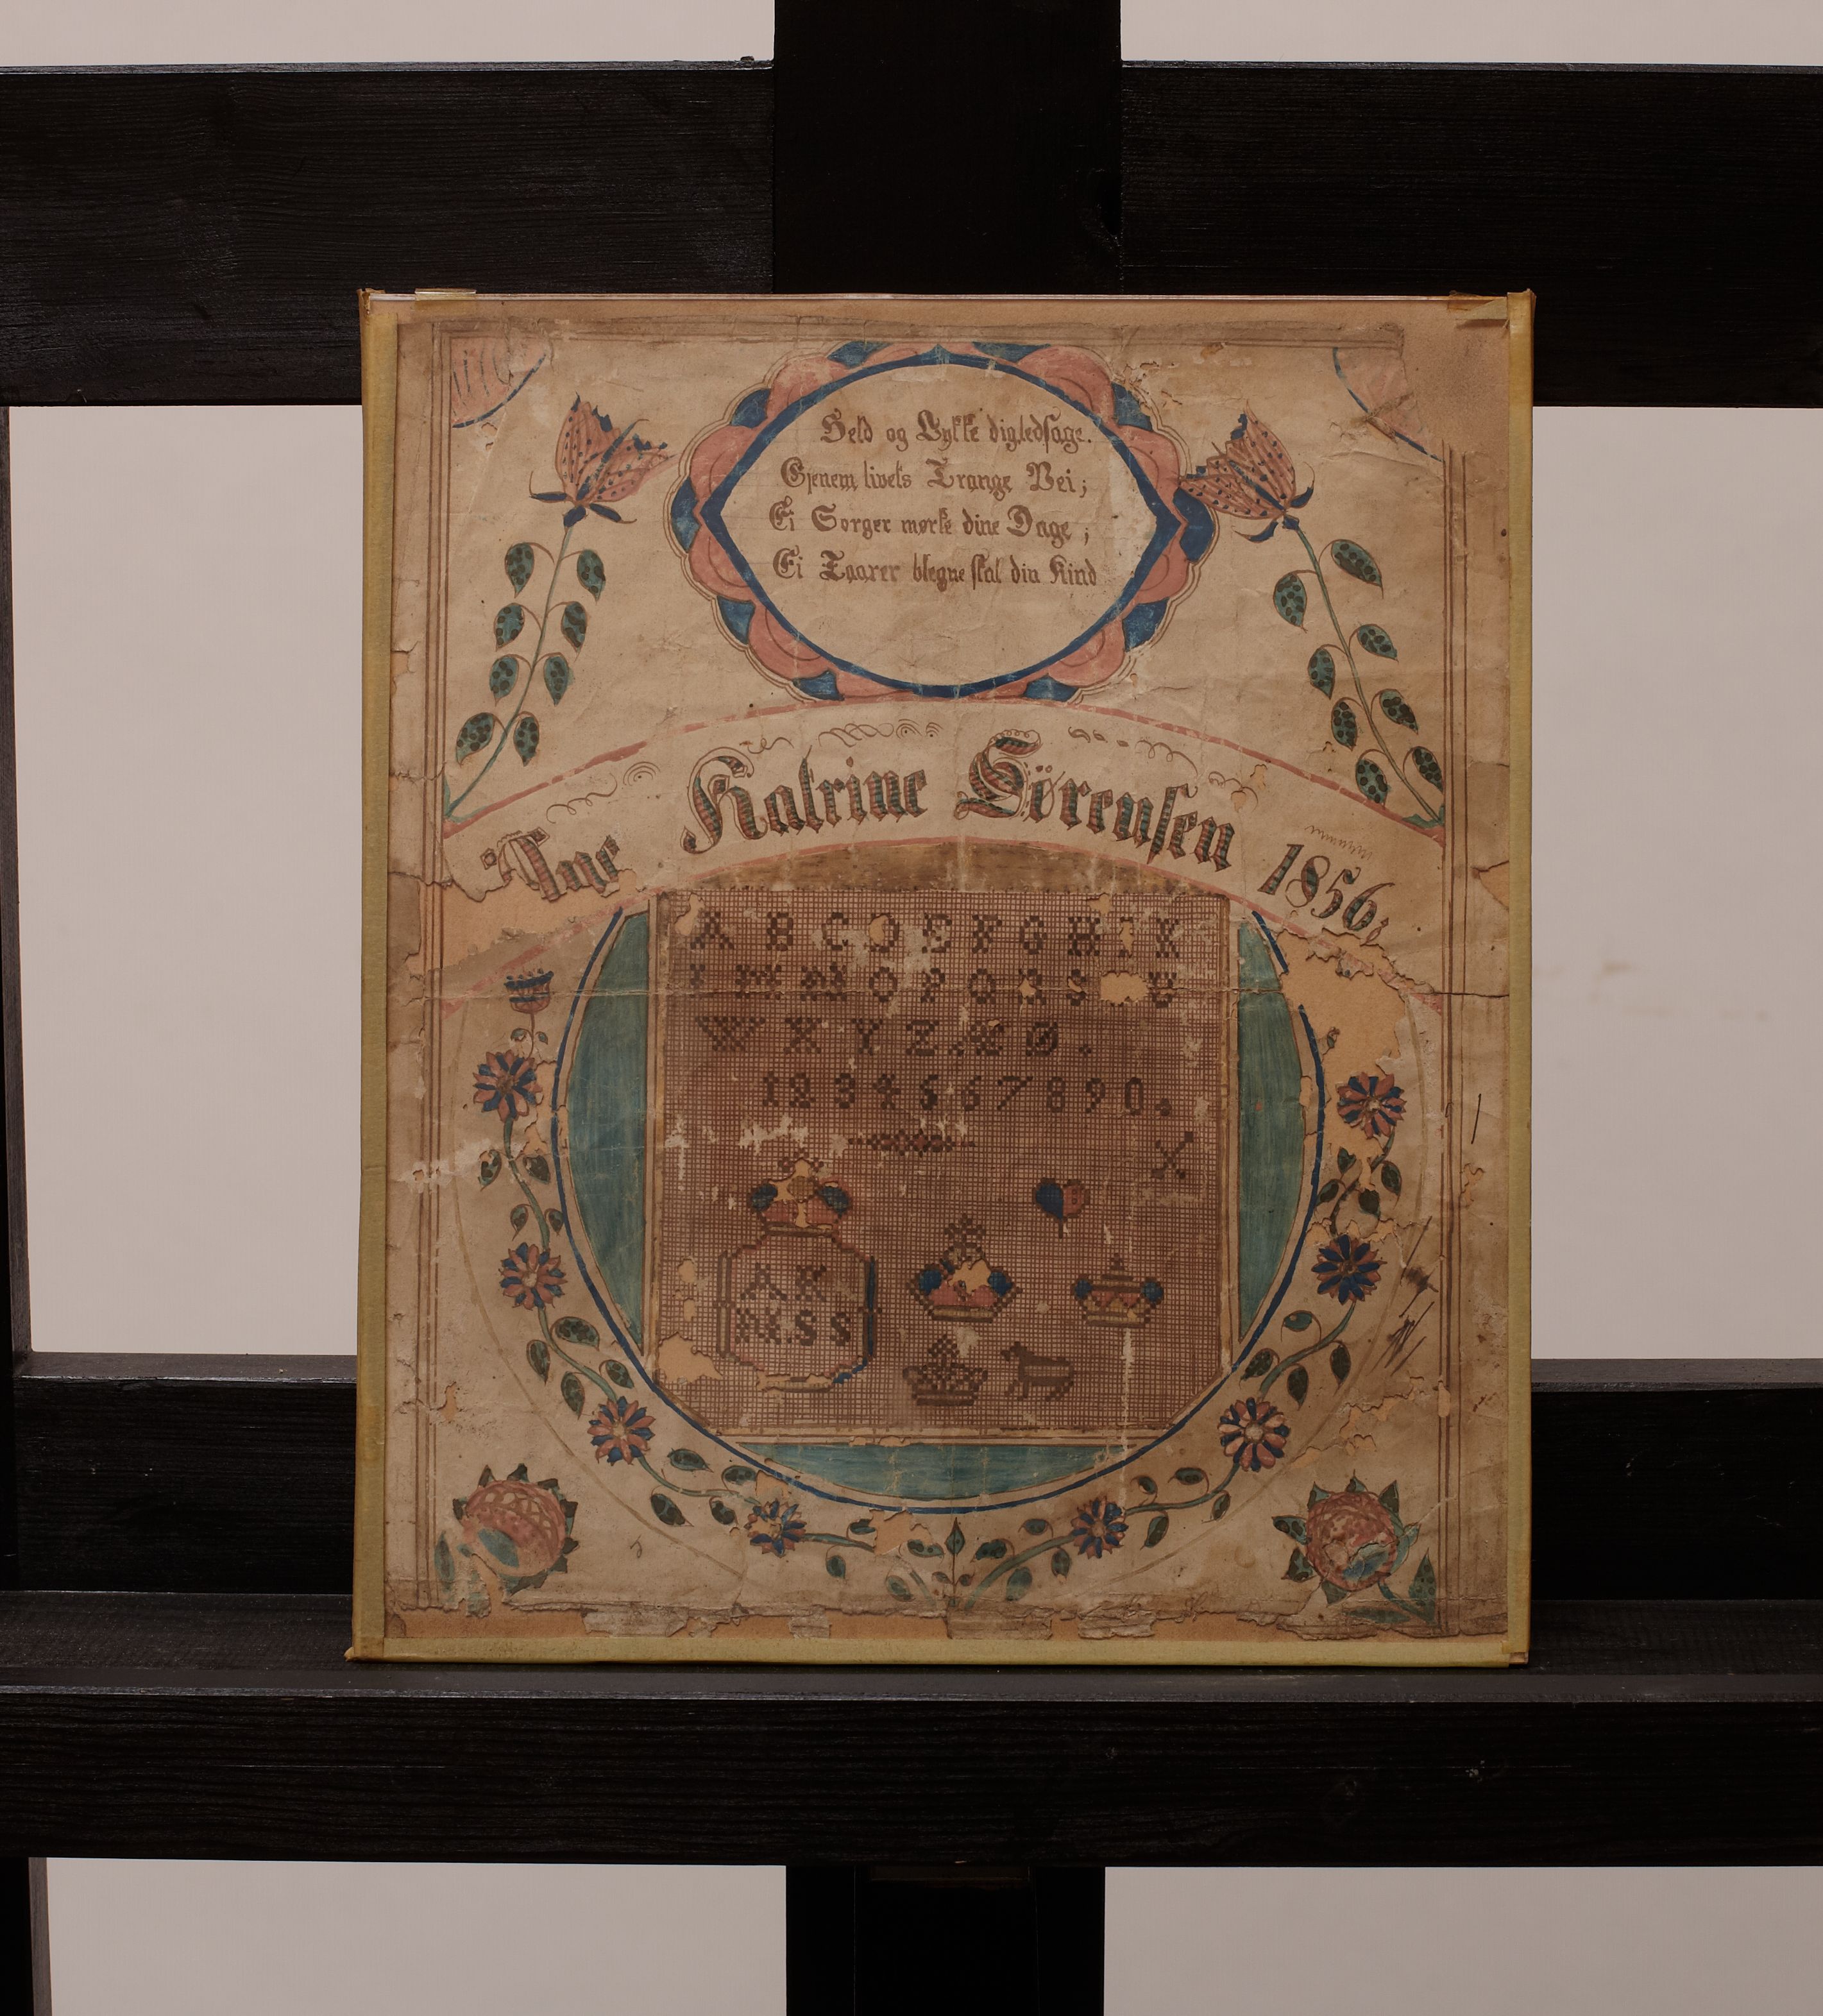 Held og Lykke dig ledsage.
Gjenem livets Trange Vei;
Ei Sorger mørke dine Dage;
Ei Taarer blegne skal din Kind
Ane Katrine Sörensen 1856
A B C D E F G H I K
L M N O P Q R S U
W X Y Z. Æ Ø.
1 2 3 4 5 6 7 8 9 0.
A K
S S